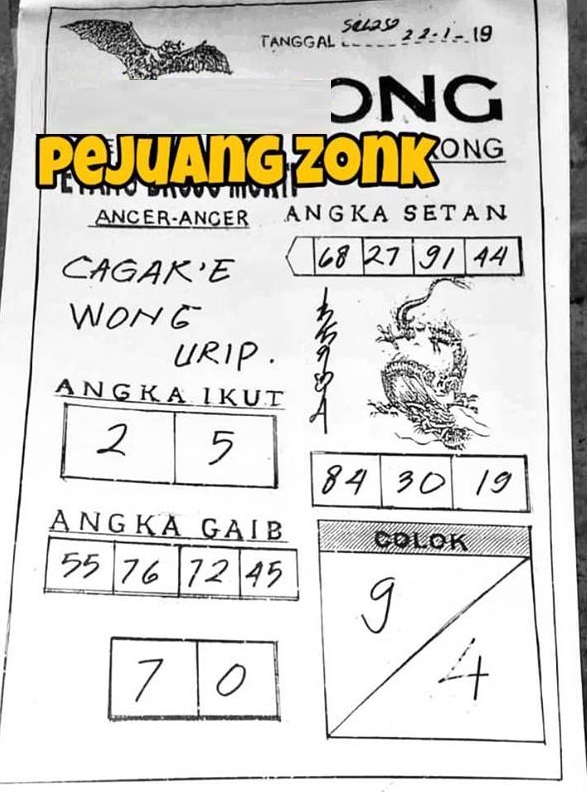 TANGGAL Selasa 22-1-19
ONG
PEJUANG ZONK
KONG
ANCER-ANCER
ANGKA SETAN
68 27 91 44
CAGAK'E
WONG
URIP.
ANGKA IKUT
2 5
84 30 19
ANGKA GAIB
55 76 72 45
COLOK
9
4
7 0